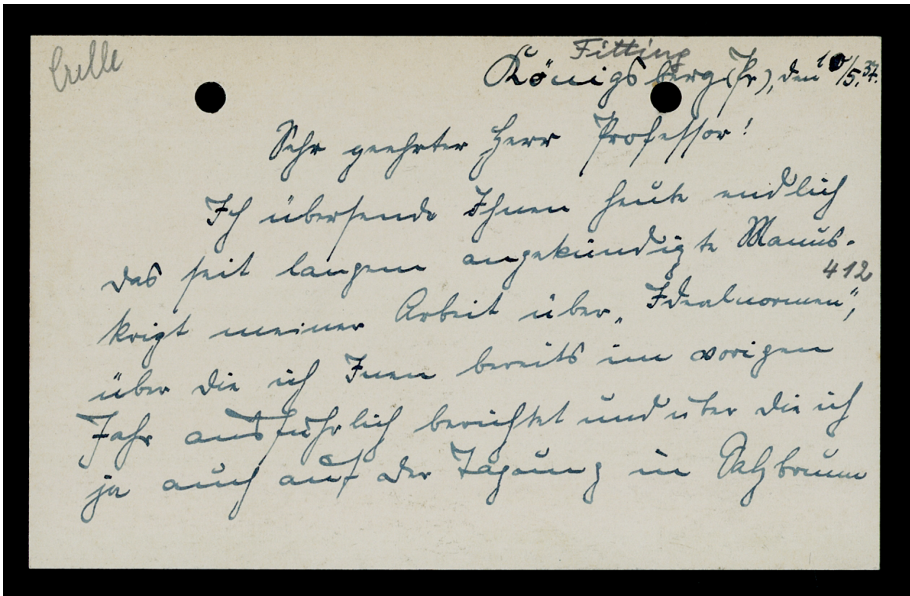 Crelle
Fitting
Königsberg (Pr), den 10/5.37.
Sehr geehrter Herr Professor!
Ich übersende Ihnen heute endlich
das seit langem angekündigte Manus-
412
kript meiner Arbeit über „Idealnormen“,
über die ich Inen bereits im vorigen
Jahr ausführlich berichtet und über die ich
ja auch auf der Tagung in Salzbrunn